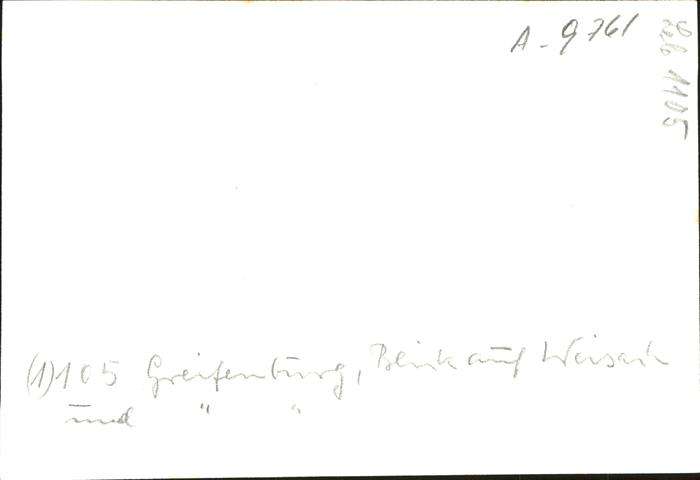 A-9761
Leb 1105
(1)105 Greifenburg, Blick auf Weisach
und " "